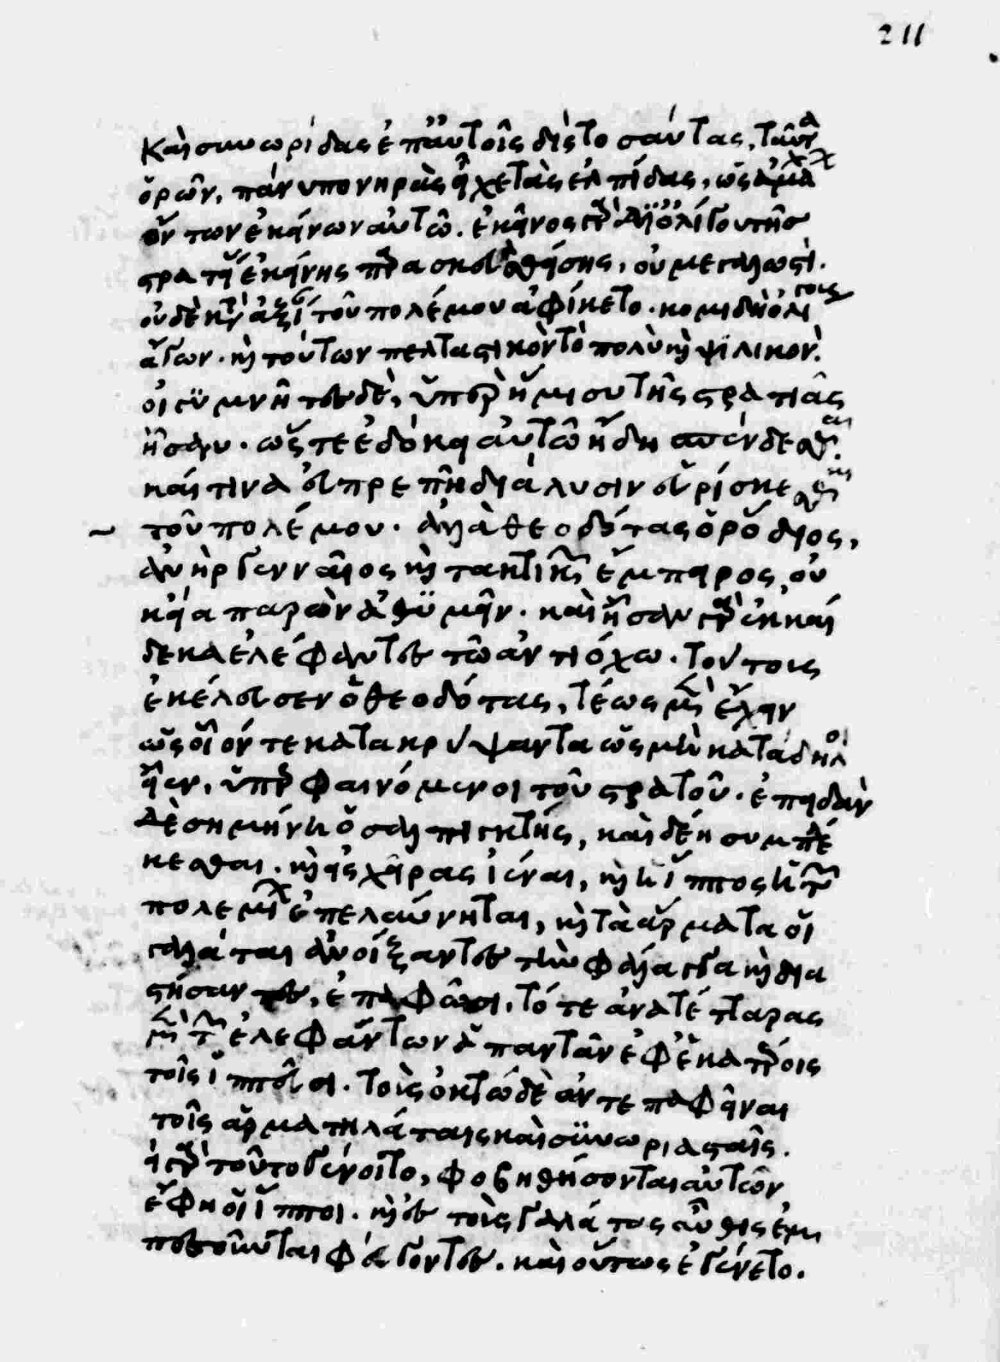 καὶ συνωρίδας ἐπ' αὐτοῖς δὶς τοσαύτας. ταῦτα
ὁρῶν, πάνυ πονηρὰς εἶχε τὰς ἐλπίδας, ὡς ἀμάχων
ὄντων ἐκείνων αὐτῷ. ἐκεῖνος γὰρ δι' ὀλίγου τῆς
στρατιᾶς ἐκείνης παρασκευασθείσης, οὐ μεγαλωστί.
οὐδὲ κατ' ἀξίαν τοῦ πολέμου ἀφίκετο. κομιδῇ ὀλίγους
ἄγων. καὶ τούτων πελταστικὸν τὸ πολὺ καὶ ψιλικόν.
οἱ γυμνῆτες δὲ, ὑπὲρ ἥμισυ τῆς στρατιᾶς
ἦσαν. ὥστε ἐδόκει αὐτῷ ἤδη σπένδεσθαι.
καί τινα εὐπρεπῆ διάλυσιν εὑρίσκεσθαι
τοῦ πολέμου. ἀλλὰ θεοδότας ὁ ῥόδιος,
ἀνὴρ γενναῖος καὶ τακτικῶν ἔμπειρος, οὐ
κ εἴα παρὼν ἀθυμεῖν. καὶ ἦσαν γὰρ ἑκκαί
δεκα ἐλέφαντες τῷ ἀντιόχῳ. τούτους
ἐκέλευσεν ὁ θεοδότας, τέως μὲν ἔχειν
ὡς οἷόν τε κατακρύψαντα ὡς μὴ κατάδηλοι
εἶεν, ὑπερφαινόμενοι τοῦ στρατοῦ. ἐπειδὰν
δὲ σημήνῃ ὁ σαλπιγκτής, καὶ δέῃ συμπλέ
κεσθαι. καὶ εἰς χεῖρας ἰέναι, καὶ ἡ ἵππος ἡ τῶν
πολεμίων ἐπελαύνηται, καὶ τὰ ἅρματα οἱ
γαλάται ἀνοίξαντες τὴν φάλαγγα καὶ δια
στήσαντες, ἐπαφῶσι, τότε ἀνὰ τέτταρας
μὲν τῶν ἐλεφάντων ἀπαντᾶν ἐφ' ἑκατέροις
τοῖς ἱππεῦσι. τοὺς ὀκτὼ δὲ ἀντεπαφεῖναι
τοῖς ἁρματηλάταις καὶ συνωριασταῖς.
εἰ γὰρ τοῦτο γένοιτο, φοβηθήσονται αὐτῶν
ἔφη οἱ ἵπποι. καὶ ἐς τοὺς γαλάτας αὖθις ἐμ
πεσοῦνται φεύγοντες. καὶ οὕτως ἐγένετο.
211